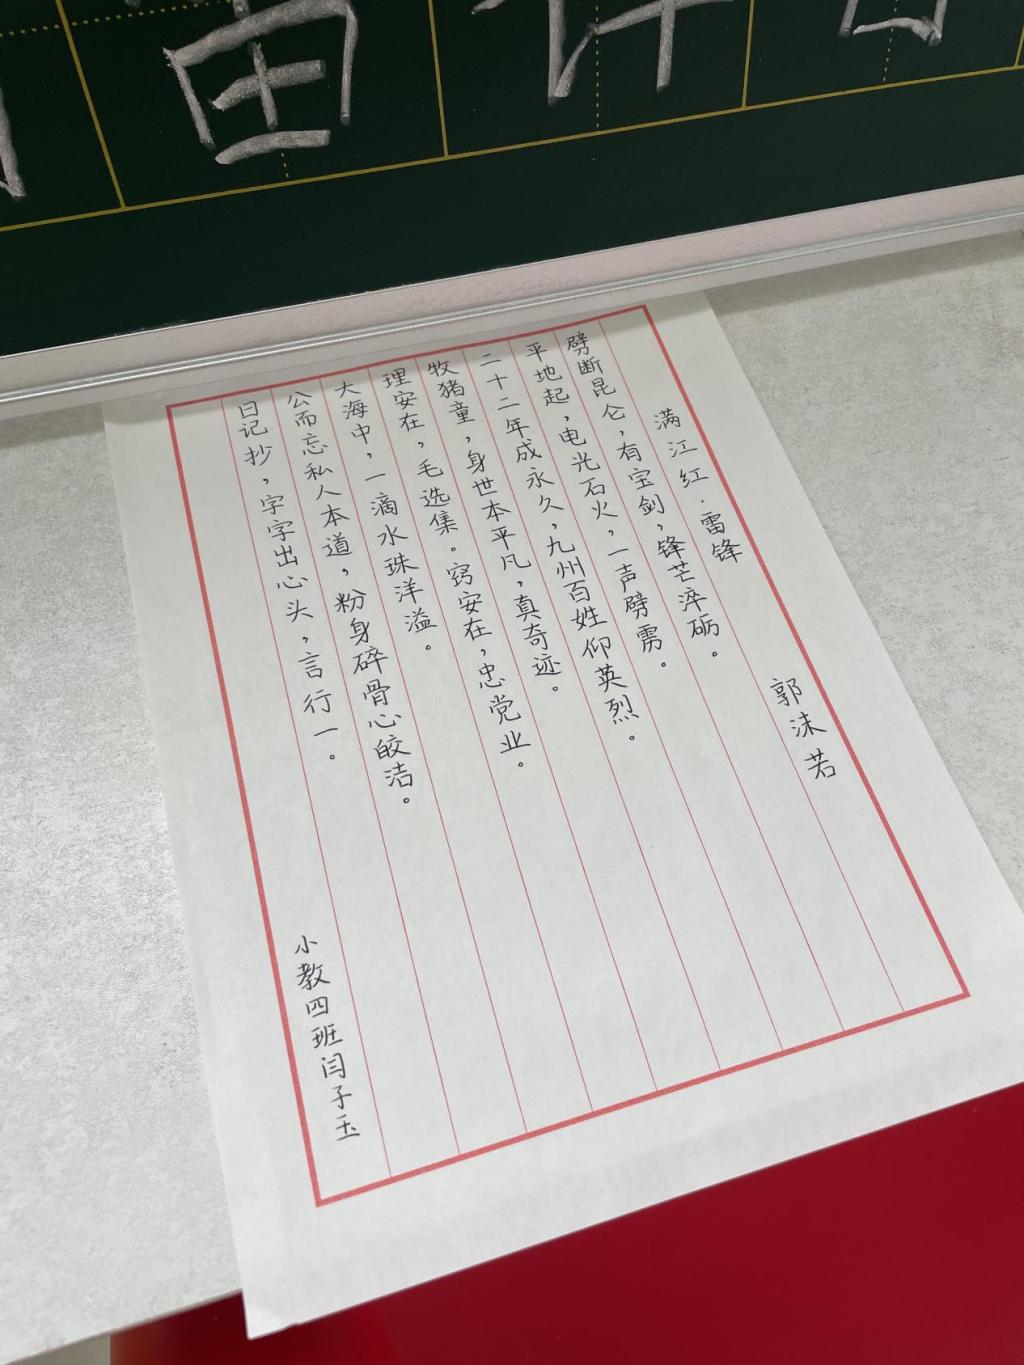 满江红.雷锋 郭沫若
劈断昆仑,有宝剑,锋芒淬砺。
平地起,电光石火,一声劈雳。
二十二年成永久,九州百姓仰英烈。
牧猪童,身世本平凡,真奇迹。
理安在,毛选集。窍安在,忠党业。
大海中,一滴水珠洋溢。
公而忘私人本道,粉身碎骨心皎洁。
日记抄,字字出心头,言行一。
小教四班闫子玉